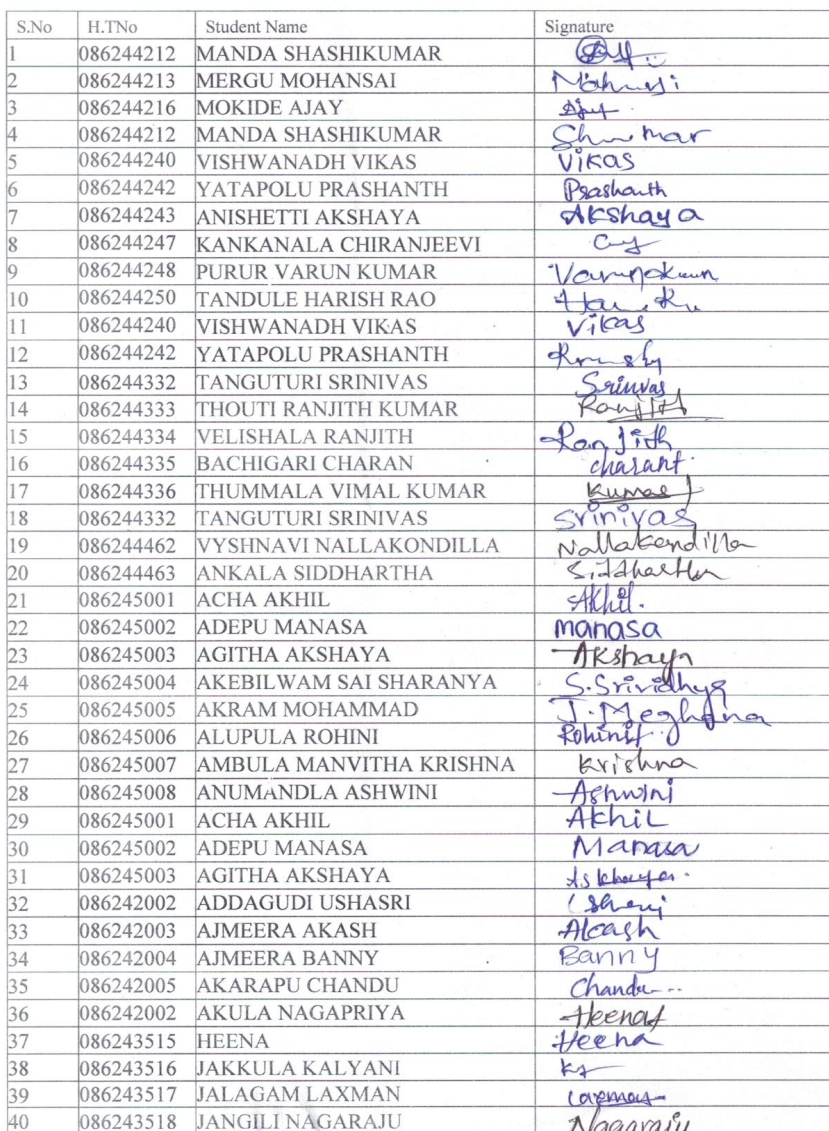 S.No H.TNo Student Name Signature
1 086244212 MANDA SHASHIKUMAR
2 086244213 MERGU MOHANSAI
3 086244216 MOKIDE AJAY Ajay
4 086244212 MANDA SHASHIKUMAR
5 086244240 VISHWANADH VIKAS Vikas
6 086244242 YATAPOLU PRASHANTH Prashanth
7 086244243 ANISHETTI AKSHAYA Akshaya
8 086244247 KANKANALA CHIRANJEEVI
9 086244248 PURUR VARUN KUMAR
10 086244250 TANDULE HARISH RAO
11 086244240 VISHWANADH VIKAS Vikas
12 086244242 YATAPOLU PRASHANTH
13 086244332 TANGUTURI SRINIVAS Srinivas
14 086244333 THOUTI RANJITH KUMAR Ranjith
15 086244334 VELISHALA RANJITH Ranjith
16 086244335 BACHIGARI CHARAN
17 086244336 THUMMALA VIMAL KUMAR Kumar
18 086244332 TANGUTURI SRINIVAS Srinivas
19 086244462 VYSHNAVI NALLAKONDILLA Nallakondilla
20 086244463 ANKALA SIDDHARTHA Siddhartha
21 086245001 ACHA AKHIL Akhil.
22 086245002 ADEPU MANASA manasa
23 086245003 AGITHA AKSHAYA Akshaya
24 086245004 AKEBILWAM SAI SHARANYA S.Srividhya
25 086245005 AKRAM MOHAMMAD J.Meghana
26 086245006 ALUPULA ROHINI Rohini
27 086245007 AMBULA MANVITHA KRISHNA Krishna
28 086245008 ANUMANDLA ASHWINI Ashwini
29 086245001 ACHA AKHIL Akhil
30 086245002 ADEPU MANASA Manasa
31 086245003 AGITHA AKSHAYA
32 086242002 ADDAGUDI USHASRI
33 086242003 AJMEERA AKASH Akash
34 086242004 AJMEERA BANNY Banny
35 086242005 AKARAPU CHANDU Chandu
36 086242002 AKULA NAGAPRIYA Heena
37 086243515 HEENA Heena
38 086243516 JAKKULA KALYANI
39 086243517 JALAGAM LAXMAN Laxman
40 086243518 JANGILI NAGARAJU Nagaraju